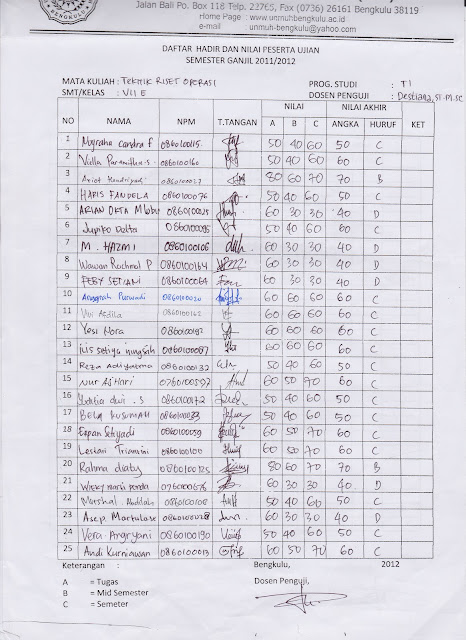 Jalan Bali Po. Box 118 Telp. 22765, Fax (0736) 26161 Bengkulu 38119
Home Page : www.unmuhbengkulu.ac.id
e-mail : unmuh-bengkulu@yahoo.com
DAFTAR HADIR DAN NILAI PESERTA UJIAN
SEMESTER GANJIL 2011/2012
MATA KULIAH : TEKNIK RISET OPERASI PROG. STUDI : TI
SMT/KELAS : VII E DOSEN PENGUJI : Destiana, ST.M.Sc
NO NAMA NPM T.TANGAN NILAI NILAI AKHIR KET
A B C ANGKA HURUF
1 Nugraha candra f 0860100115 50 40 60 50 C
2 0860100160 50 40 60 60 C
3 0860100027 80 60 70 70 B
4 HARIS FANDELA 0860100076 50 40 60 50 C
5 ARIAN OKTA 0860100025 60 30 30 40 D
6 Delta 0860100095 50 40 60 60 C
7 M. HAZMI 0860100106 60 30 30 40 D
8 Wawan Rachmat P 0860100164 60 30 30 40 D
9 FEBY SETIANI 0860100064 60 30 30 40 D
10 Anugrah Purwadi 0860100020 60 60 60 60 C
11 0860100162 60 60 60 60 C
12 Yesi Nora 0860100192 60 60 60 60 C
13 iris setiya ningsih 0860100087 60 60 60 60 C
14 Reza 0860100132 50 40 60 50 C
15 Nur 0760100597 60 50 70 60 C
16 dwi . S 0860100172 50 40 60 50 C
17 BELA KUSUMAH 50 40 60 50 C
18 Setiyadi 0860100059 60 50 70 60 C
19 Lestari Triamini 0860100100 60 50 70 60 C
20 Rahma diaty 0860100125 80 60 70 70 B
21 0760100676 60 30 30 40 D
22 Marshal. 0860100108 50 40 60 50 C
23 Asep. 0860100028 60 30 30 40 D
24 Vera. Angryani 0860100190 50 40 60 50 C
25 Andi Kurniawan 0860100013 60 50 70 60 C
Keterangan : Bengkulu, 2012
A = Tugas Dosen Penguji,
B = Mid Semester
C = Semeter